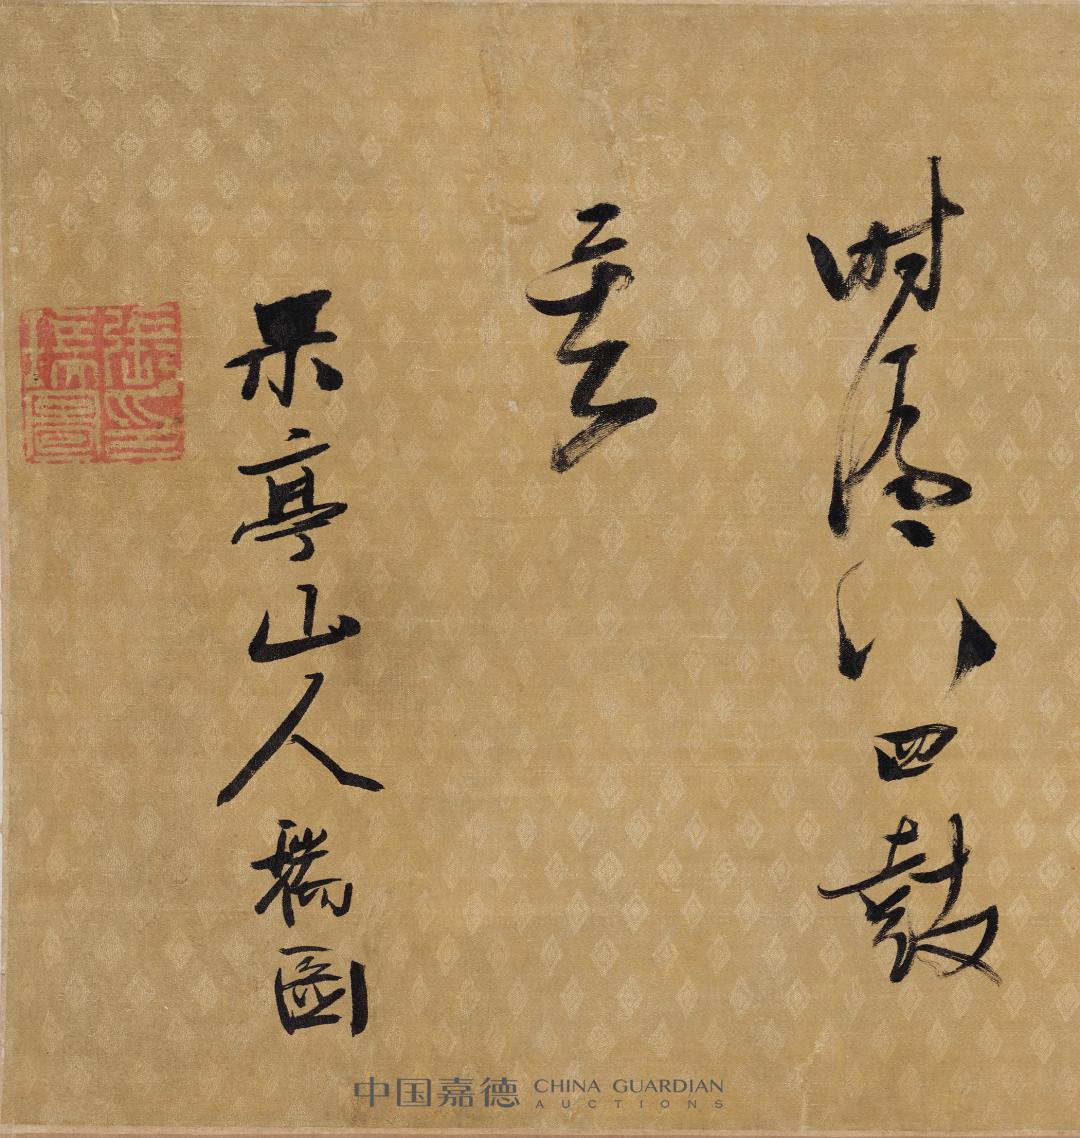 時漏下四鼓
矣
果亭山人瑞圖
張印瑞圖
中国嘉德 CHINA GUARDIAN
AUCTIONS